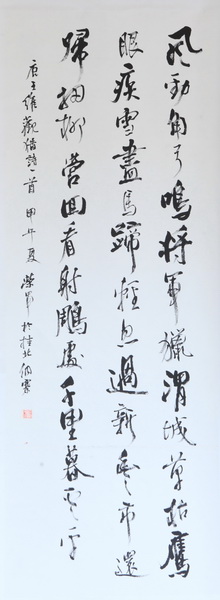 风勁角弓鳴將軍獵渭城草枯鷹
眼疾雪盡馬蹄輕忽過新丰市還
歸細柳營回看射雕處千里暮云平
唐王維觀猎詩一首 甲午夏 榮軍於桂北